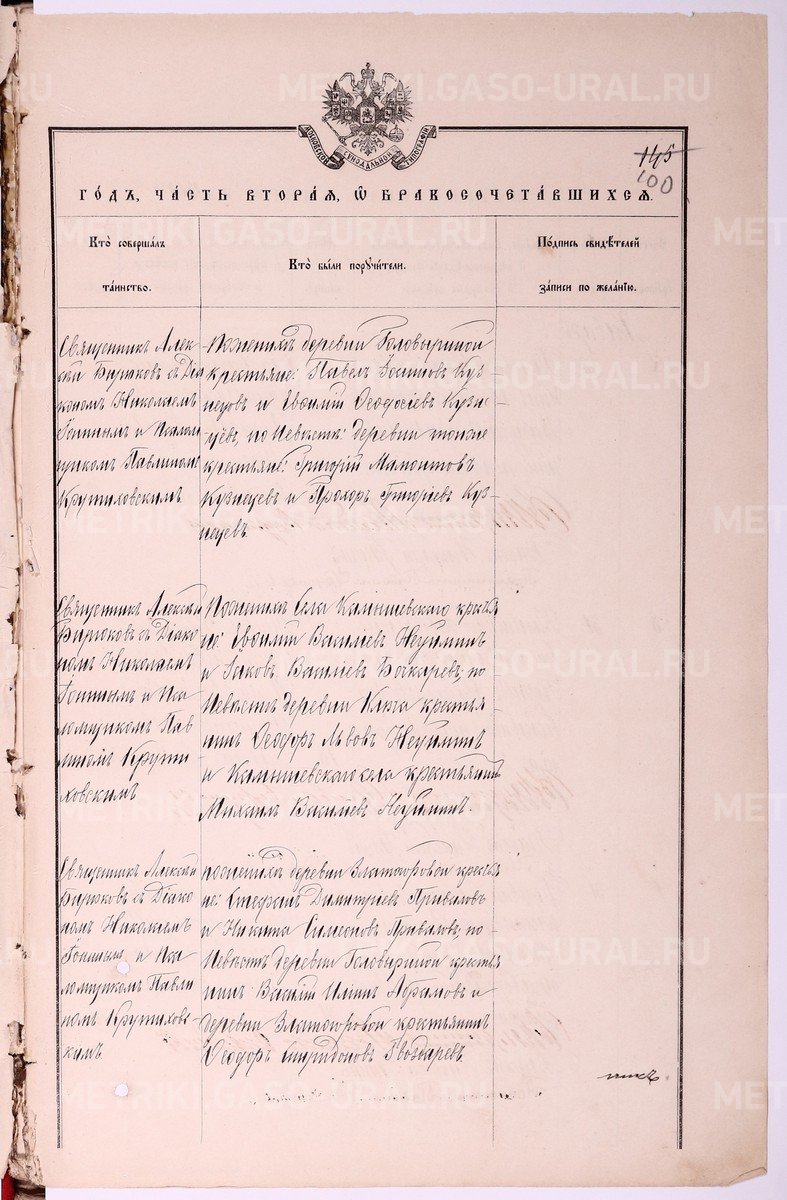 МОСКОВСКОЙ СѴНОДАЛЬНОЙ ТИПОГРАФІИ
145
100
ГО́ДЪ, ЧА́СТЬ ВТОРА́Я, Ѡ҆ БРАКОСОЧЕТА́ВШИХСЯ.
Кто̀ соверша́лъ
та́инство.
Кто̀ бы́ли поручи́тели.
По́дпись свидѣ́телей
за́писи по жела́нію.
Священникъ Алек-
сѣй Бирюковъ съ Діа
кономъ Николаемъ
и Псалом
щикомъ Павлиномъ
Крутиховскимъ
По женихѣ деревни Головыриной
крестьяне: Павелъ Іоакимовъ Куз-
нецовъ и Евѳимій Ѳеодосіевъ Кузне-
цевъ, по невѣстѣ: деревни тойже
крестьяне: Григорій Мамонтовъ
Кузнецевъ и Прохоръ Григоріевъ Куз-
нецевъ.
Священникъ Алексѣй
Бирюковъ съ Діако-
номъ Николаемъ
и Пса
ломщикомъ Пав
линомъ Крути
ховскимъ
По женихѣ Села Камышевскаго кресть
не: Евѳимій Василіевъ Неуйминъ
и Іаковъ Василіевъ Бочкаревъ, по
невѣстѣ деревни Ключа крестья-
нинъ Ѳеодоръ Львовъ Неуйминъ
и Камышевскаго села крестьянинъ
Михаилъ Василіевъ Неуйминъ.
Священникъ Алексѣй
Бирюковъ съ Діако
номъ Николаемъ
и Пса
ломщикомъ Павли
номъ Крутихов-
скимъ
по женихѣ деревни Златогоровой кресть
не: Стефанъ Димитріевъ Приваловъ
и Никита Симеоновъ Приваловъ, по
невѣстѣ деревни Головыриной крестья
нинъ Василій Илiинъ Абрамовъ и
деревни Златогоровой крестьянинъ
Ѳеодоръ Спиридоновъ Гвоздаревъ
METRIKI.GASO-URAL.RU